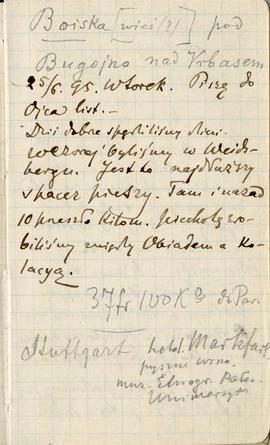 Boiska [wieś (?)] pod
Bugojno nad Vrbasem
25/6. 95. Wtorek. Piszę do
Ojca list. —
Dni dobre spędziliśmy
wczoraj byliśmy w Weids-
bergu. Jest to najdłuższy
spacer pieszy. Tam i nazad
10 przeszło kilom. piechotą zro-
biliśmy między Obiadem a Ko-
lacyą.
37 fr 100 K
Stuttgart hotel Markfart
pyszne wino.
muz. Etnogr.